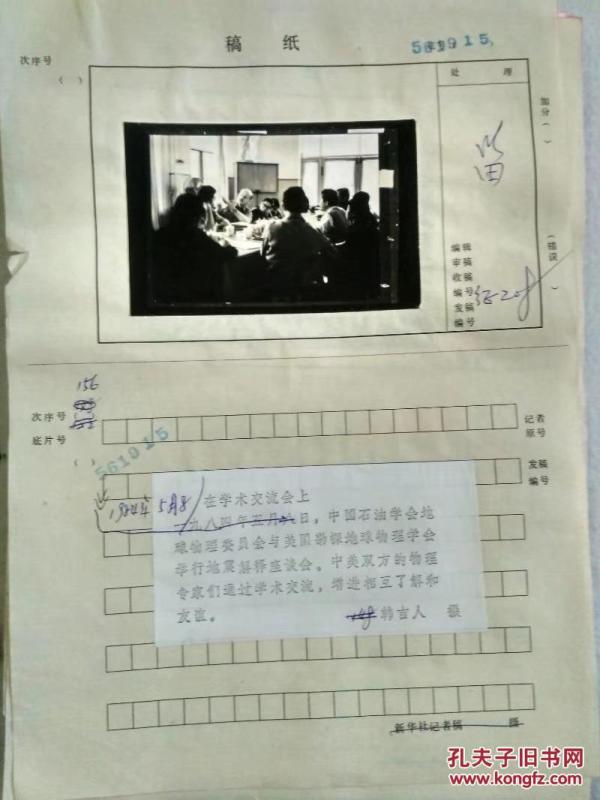 稿 纸
561915
次序号
( )
处 理
加分( )
留
(错误 )
编辑
审稿
收稿
编号
发稿
编号
156
次序号
底片号
记者
原号
561915
( )
发稿
编号
1984年5月8
在学术交流会上
一九八四年五月八日,中国石油学会地
球物理委员会与美国勘探地球物理学会
举行地震解释座谈会。中美双方的物理
专家们通过学术交流,增进相互了解和
友谊。 韩吉人 摄
新华社记者稿 摄
孔夫子旧书网
www.kongfz.com